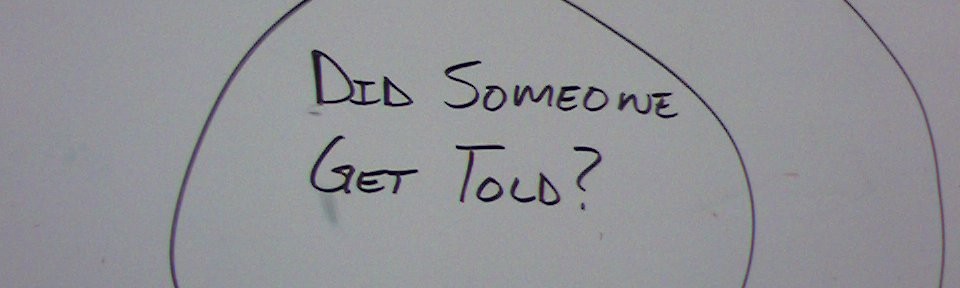 Did Someone
Get Told?